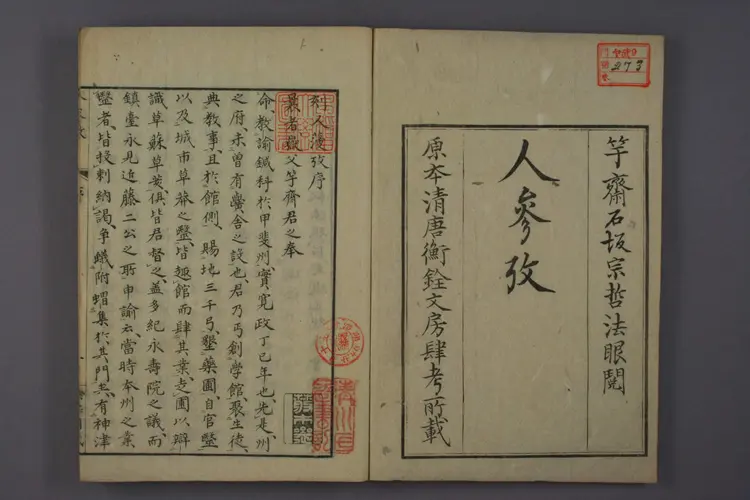 竽齋石坂宗哲法眼閱
人參攷
原本清唐衡銓文房肆考所載
273
人參攷序
曩者嶽父竽齋君之奉
命、教諭鍼科於甲斐州、實寬政丁巳年也、先是州
之府、未曾有黌舍之設也、君乃丐創學館、聚生徒、
典教事、且於館側、賜地三千弓、墾藥圃、自官毉
以及城市草莽之毉、皆趣館而肄其業、走圃以辯
識草蘇草荄、俱皆君督之、蓋多紀永壽院之議、而
鎮臺永見近藤二公之所申諭云、當時本州之業
毉者、皆投刺納謁、爭蟻附螬集於其門、共有神津